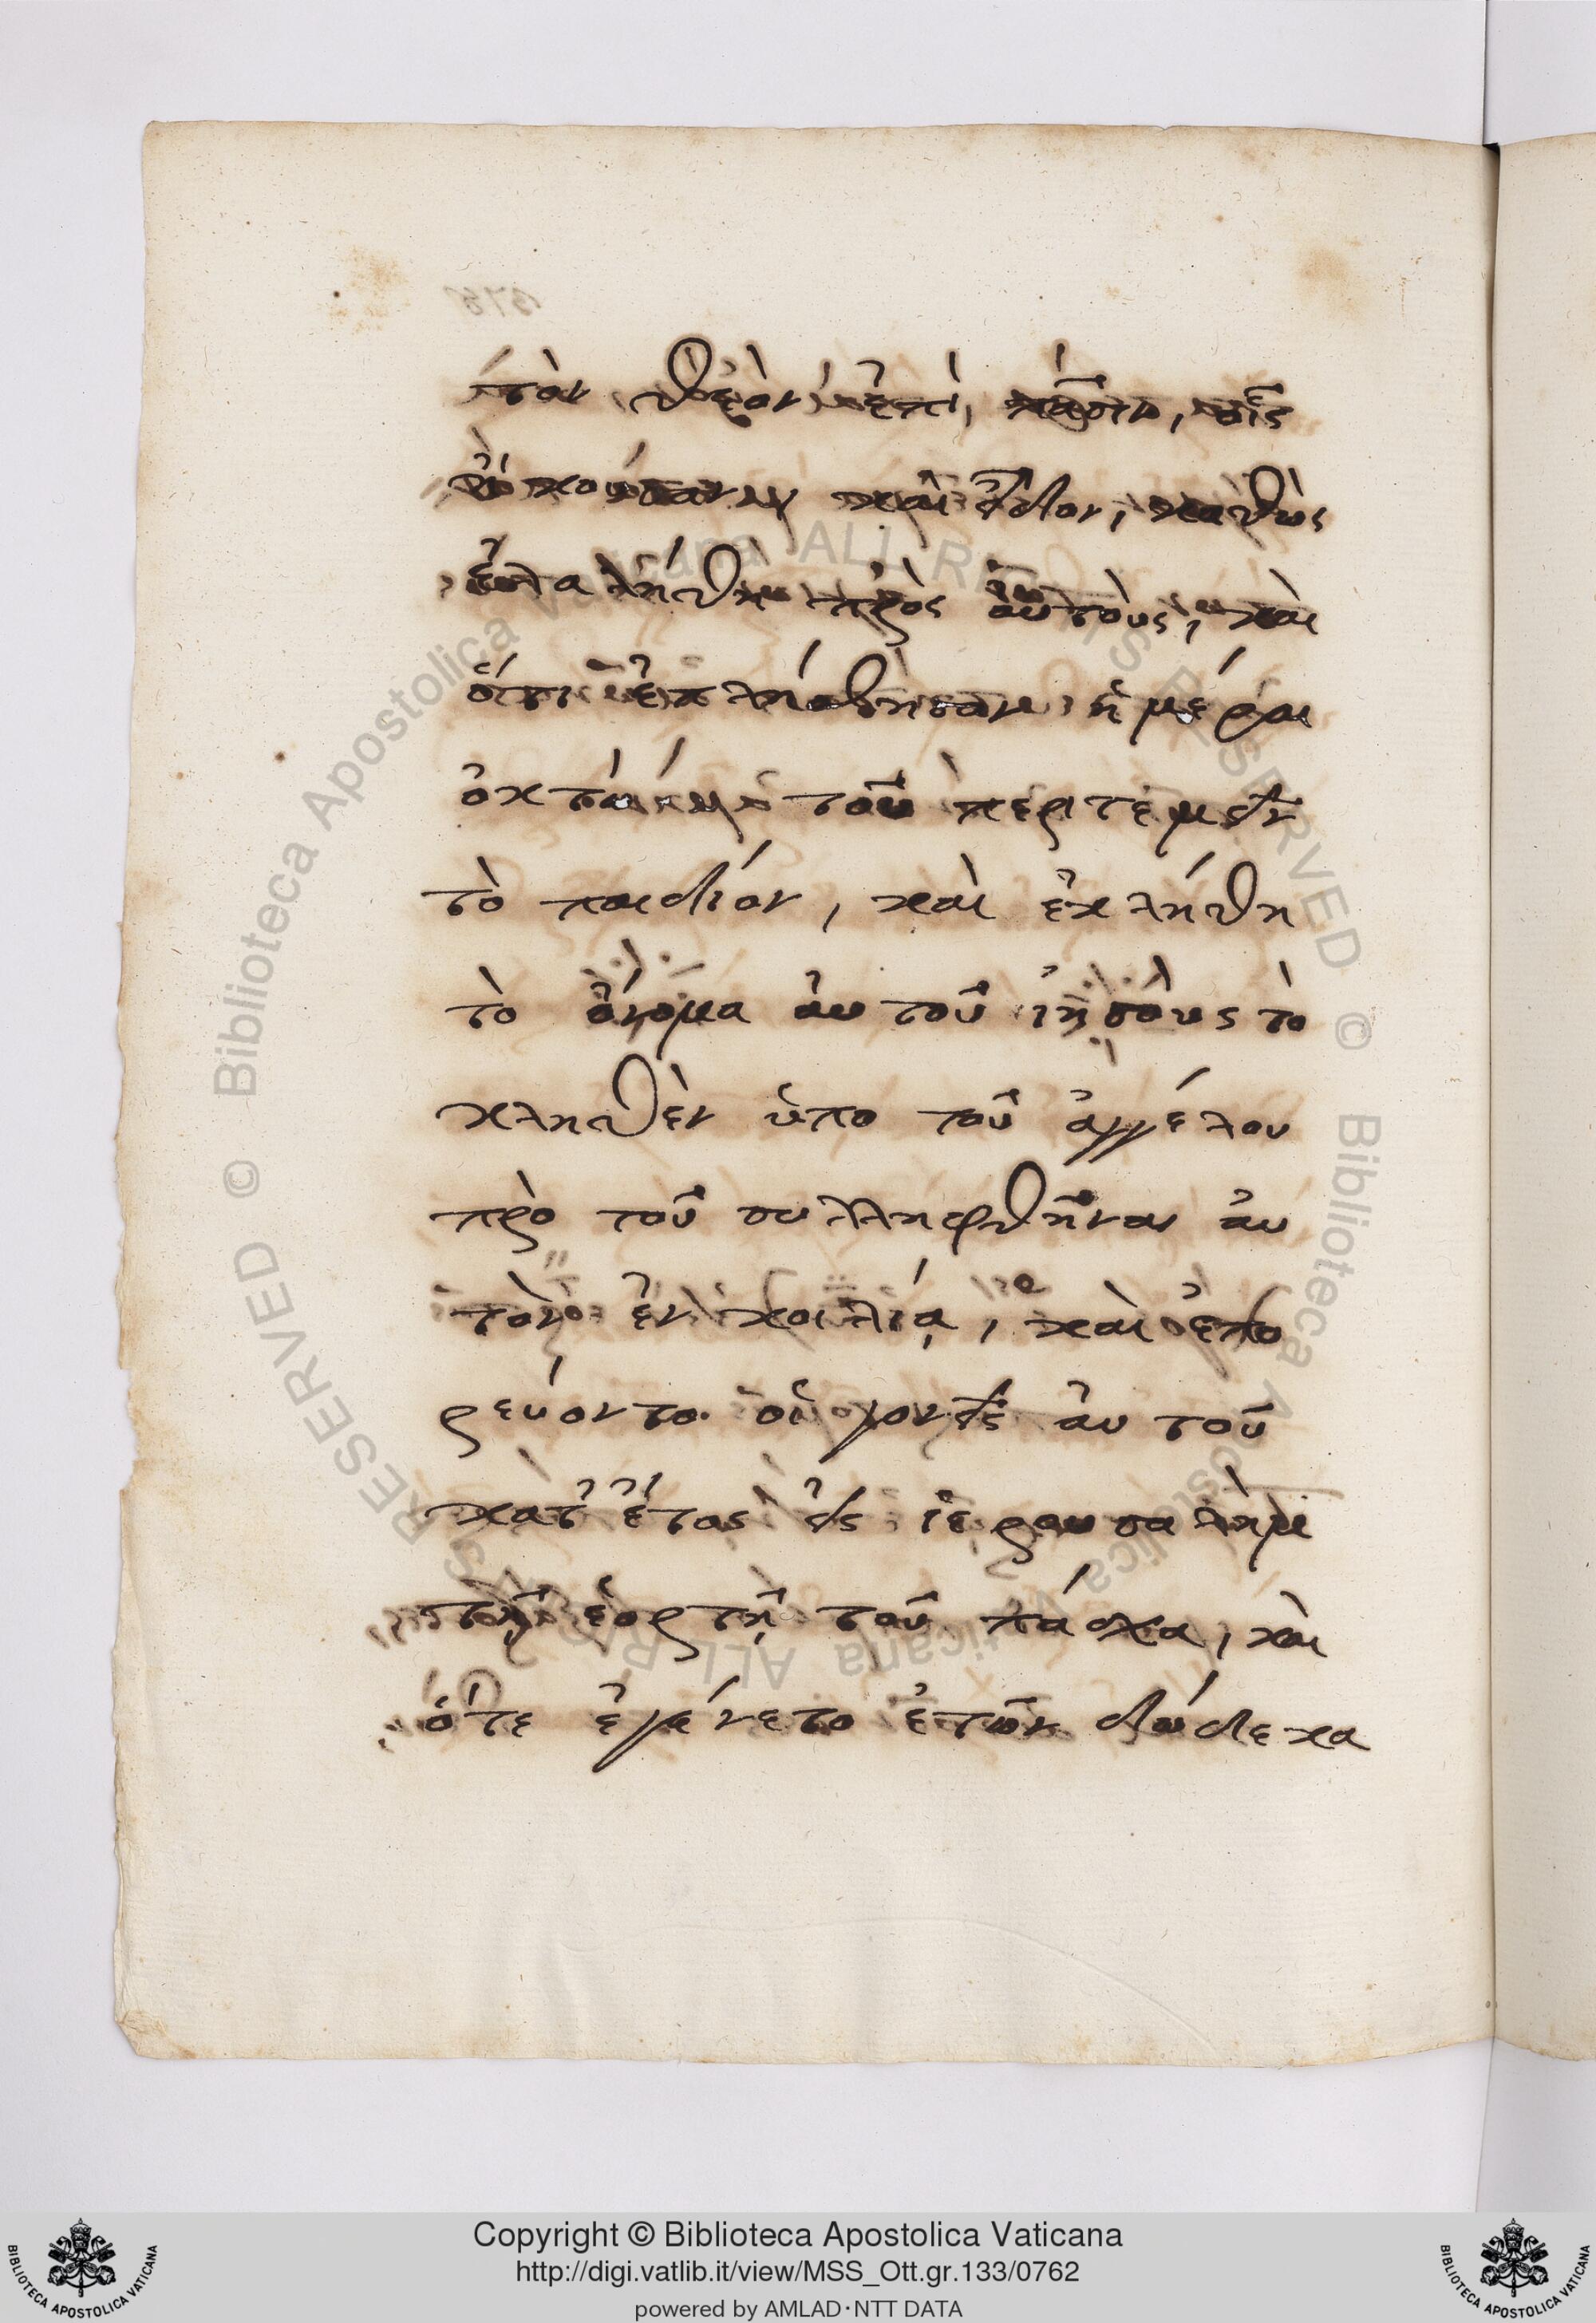 τὸν θεὸν ἐπὶ πᾶσιν, οἷς
ἤκουσαν καὶ εἶδον, καθὼς
ἐλαλήθη πρὸς αὐτοὺς, καὶ
ὅτι ἐπλήσθησαν ἡμέραι
ὀκτώ τοῦ περιτεμεῖν
τὸ παιδίον, καὶ ἐκλήθη
τὸ ὄνομα αὐτοῦ ἰησοῦς τὸ
κληθὲν ὑπο τοῦ ἀγγέλου
πρὸ τοῦ συλληφθῆναι αὐ
τὸν ἐν κοιλίᾳ, καὶ ἐπο
ρεύοντο οἱ γονεῖς αὐτοῦ
κατ᾽ ἔτος εἰς ἱερουσαλὴμ
τῇ ἑορτῇ τοῦ πάσχα, καὶ
ὅτε ἐγένετο ἐτῶν δώδεκα
Copyright © Biblioteca Apostolica Vaticana
http://digi.vatlib.it/view/MSS_Ott.gr.133/0762
powered by AMLAD·NTT DATA
BIBLIOTECA APOSTOLICA VATICANA
BIBLIOTECA APOSTOLICA VATICANA